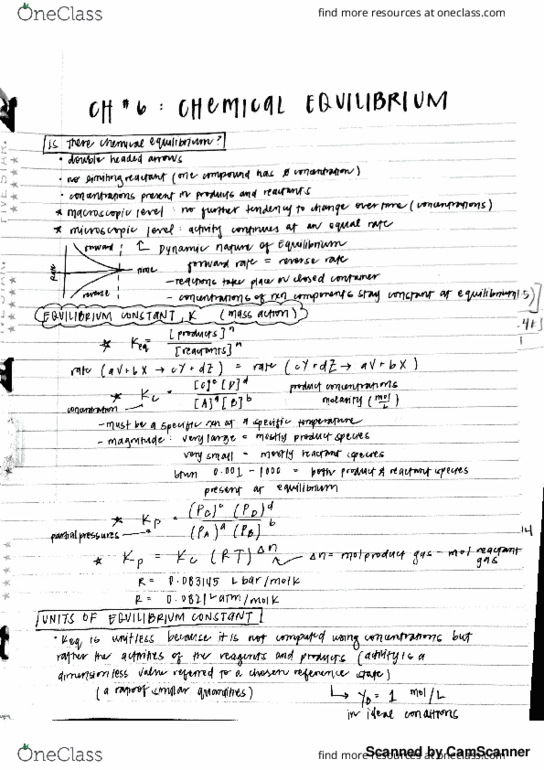 OneClass
find more resources at oneclass.com
CH # 6 : CHEMICAL EQUILIBRIUM
Is there chemical equilibrium?
• double headed arrows
• no limiting reactant (one compound has 0 concentration)
• concentrations present in products and reactants
* macroscopic level : no further tendency to change over time (concentrations)
* microscopic level : activity continues at an equal rate
forward
Dynamic nature of Equilibrium
Rate
time
forward rate = reverse rate
- reactions take place in closed container
reverse
- concentrations of rxn components stay constant at equilibrium
EQUILIBRIUM CONSTANT, K (mass action)
* Keq = [products]ⁿ / [reactants]ⁿ
rate (aV + bX → cY + dZ) = rate (cY + dZ → aV + bX)
* Kc = [C]ᶜ [D]ᵈ / [A]ᵃ [B]ᵇ
product concentrations
molarity (mol/L)
concentration
- must be a specific rxn at a specific temperature
- magnitude : very large = mostly product species
very small = mostly reactant species
btwn 0.001 - 1000 = both product & reactant species
present at equilibrium
* Kp = (PC)ᶜ (PD)ᵈ / (PA)ᵃ (PB)ᵇ
partial pressures
* Kp = Kc (RT)^Δn
Δn = mol product gas - mol reactant gas
R = 0.083145 L bar/mol K
R = 0.0821 L atm/mol K
UNITS OF EQUILIBRIUM CONSTANT
• Keq is unitless because it is not computed using concentrations but
rather the activities of the reagents and products (activity is a
dimensionless value referred to a chosen reference state)
(a ratio of similar quantities)
= 1 mol/L
in ideal conditions
OneClass
find more resources at oneclass.com
Scanned by CamScanner